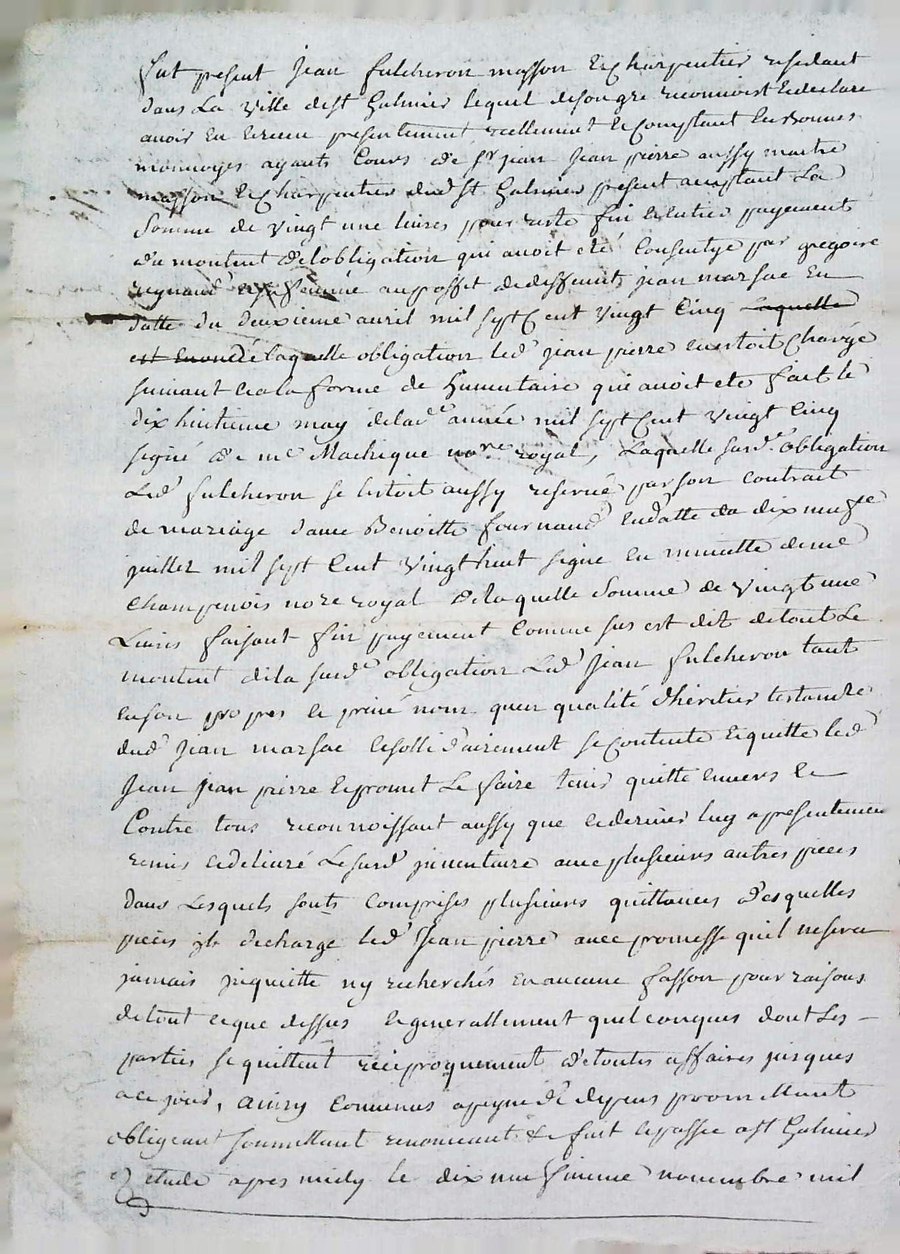 fut present jean fulcheron masson & charpentier residant
dans la ville de st Galmier lequel de son gre reconnoist & declare
avoir eu & receu presentement reellement & comptant en bonnes
monnoyes ayants cours de sr jean jean pierre aussy maitre
masson & charpentier dud st Galmier present acceptant La
somme de vingt une livres pour reste fin & entier payement
du montent de lobligation qui avoit eté consentye par gregoire
reynaud au proffit de deffunt jean marsac en
datte du deuxieme avril mil sept Cent vingt Cinq laquelle
est enoncé laquelle obligation led jean pierre en estoit Chargé
suivant & a la forme de linventaire qui avoit ete fait le
dix huitieme may de lad année mil sept Cent vingt Cinq
signé de me Machique nore royal, Laquelle susd obligation
Led fulcheron se lestoit aussy reservée par son contrait
de mariage d'avec Benoitte fournand en datte du dix neufe
juillet mil sept Cent vingt huit signe en minutte de me
Champenois nore royal de laquelle somme de vingt une
Livres faisant fin payement Comme sus est dit de tout Le
montent de la susd obligation Led jean fulcheron tant
en son propres & privé nom qu'en qualité dheritier testamre
dud jean marsac & sollidairement se Contente & quitte led
jean jean pierre & promet Le faire tenir quitte envers &
Contre tous reconnoissant aussy que ce dernier luy a presentement
remis & delivré Le susd inventaire avec plusieurs autres pieces
dans Lesquels sonts Comprises plusieurs quittances desquelles
pieces il decharge led jean pierre avec promesse quil ne sera
jamais inquiette ny recherchés en aucune fasson pour raisons
de tout ce que dessus & generallement quelconques dont Les
parties se quittent reciproquement de toutes affaires jusques
a ce jour, ainsy Convenus a peyne de depens promettant
obligeant soumettant renonceant &c fait & passé a st Galmier
etude apres midy le dix neufvieme novembre mil